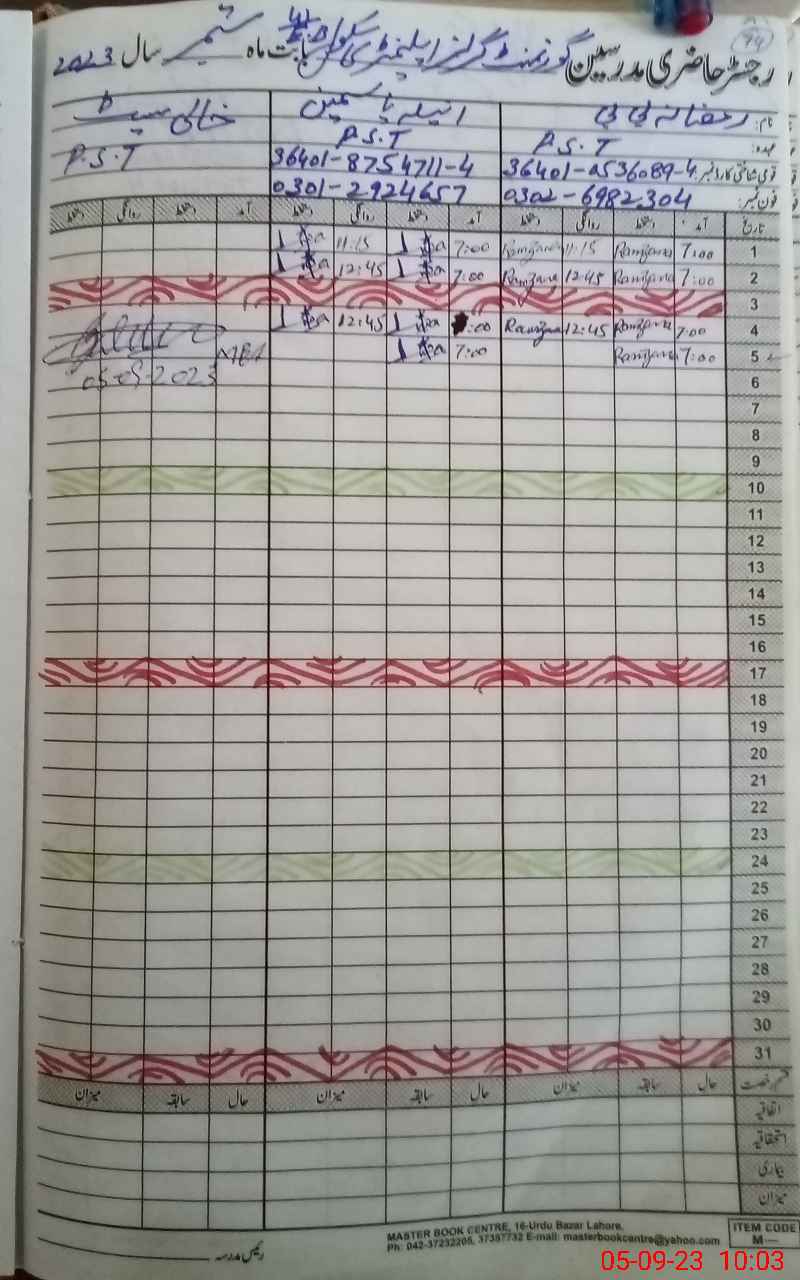 94
رجسٹر حاضری مدرسین گورنمنٹ گرلز ایلیمنٹری سکول بابت ماہ ستمبر سال 2023
نام: رمضانہ بی بی انیلہ یاسمین خالی سیٹ
عہدہ: P.S.T P.S.T P.S.T
قومی شناختی کارڈ نمبر: 36401-0536089-4 36401-8754711-4
فون نمبر: 0302-6982304 0301-2924657
تاریخ آمد دستخط روانگی دستخط آمد دستخط روانگی دستخط آمد دستخط روانگی دستخط
1 7:00 Ramzana 11:15 Ramzana 7:00 11:15
2 7:00 Ramzana 12:45 Ramzana 7:00 12:45
3
4 7:00 Ramzana 12:45 Ramzana :00 12:45
5 7:00 Ramzana 7:00
6 05-09-2023
7
8
9
10
11
12
13
14
15
16
17
18
19
20
21
22
23
24
25
26
27
28
29
30
31
قسم رخصت حال سابقہ میزان حال سابقہ میزان حال سابقہ میزان
اتفاقیہ
استحقاقیہ
بیماری
میزان
رئیس مدرسہ
MASTER BOOK CENTRE, 16-Urdu Bazar Lahore.
Ph: 042-37232205, 37357732 E-mail: masterbookcentre@yahoo.com
ITEM CODE
M—
05-09-23 10:03